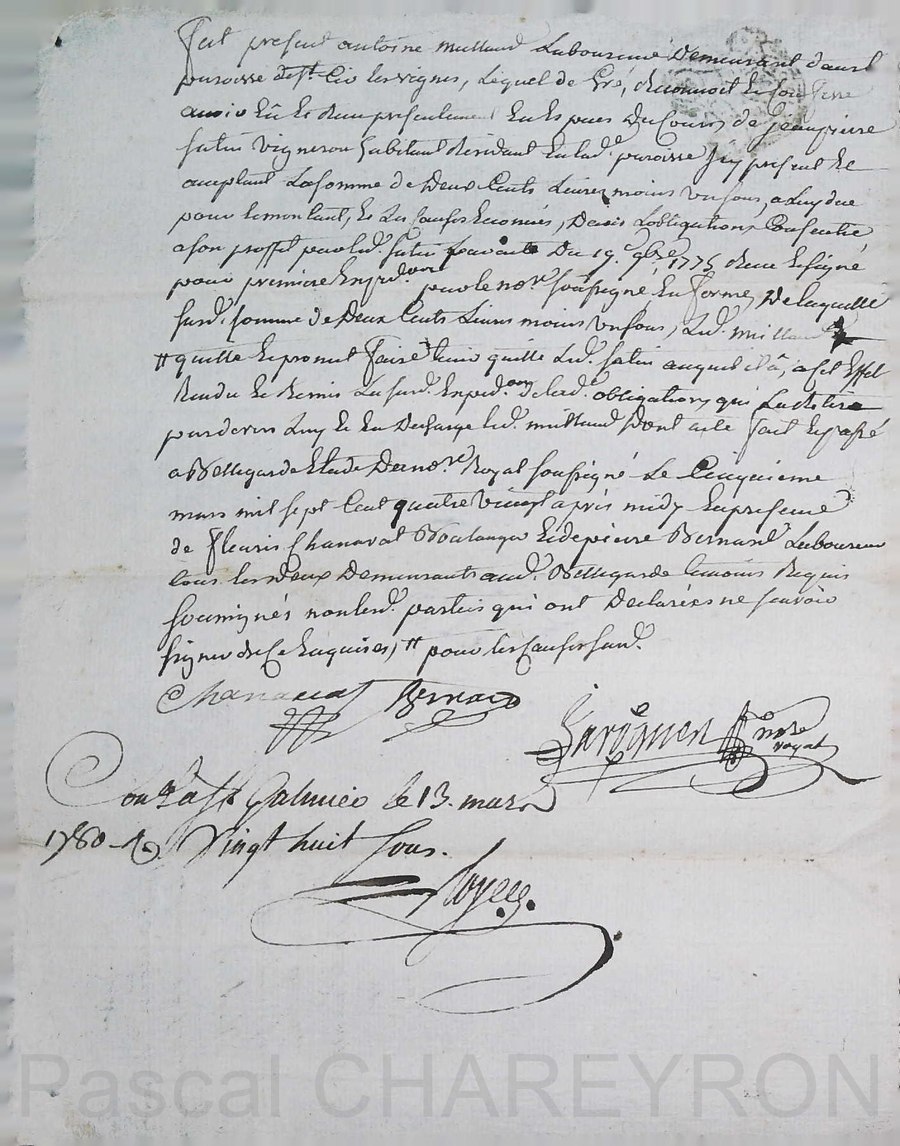 fut present antoine millaud Laboureur Demeurant dans la
paroisse de st. Cir les vignes, Lequel de Gré, Reconnoit et confesse
avoir Eû et Reçu presentement En Especes Du Cours de Jean pierre
fatin vigneron habitant Residant En lad. paroisse Icy present Et
acceptant La somme de Deux Cents Livres moins un sous, a Luy due
pour le montant, et Les Causes Enoncées, Dans L'obligation Consentie
a son proffit par led. fatin Devant Du 19e. 9bre. 1775 Reçue Et signé
pour premiere Expedon. par le nore. soussigné En forme, De laquelle
susd. somme de Deux Cents Livres moins un sous, Led. millaud
# quitte Et promet faire tenir quitte Led. fatin auquel il â, a cet Effet
Rendu Et Remis La susd. Expedon. de lad. obligation, qui
pardevers Luy Et En Decharge Led. millaud Dont acte fait Et passé
a Bellegarde Etude Du nore. Royal soussigné Le Cinquieme
mars mil sept Cent quatre vingt après midy En presence
de fleuris Chanavat Boulanger Et de pierre Bernard Laboureur
tous les deux Demeurants aud. Bellegarde temoins Requis
soussignés non lesd. parties qui ont Declarées ne scavoir
signer de Ce Enquises, # pour les Causes susd.
Chanavat Bernard
nore
royal
Con. à st Galmier le 13. mars
1780 Vingt huit sous.